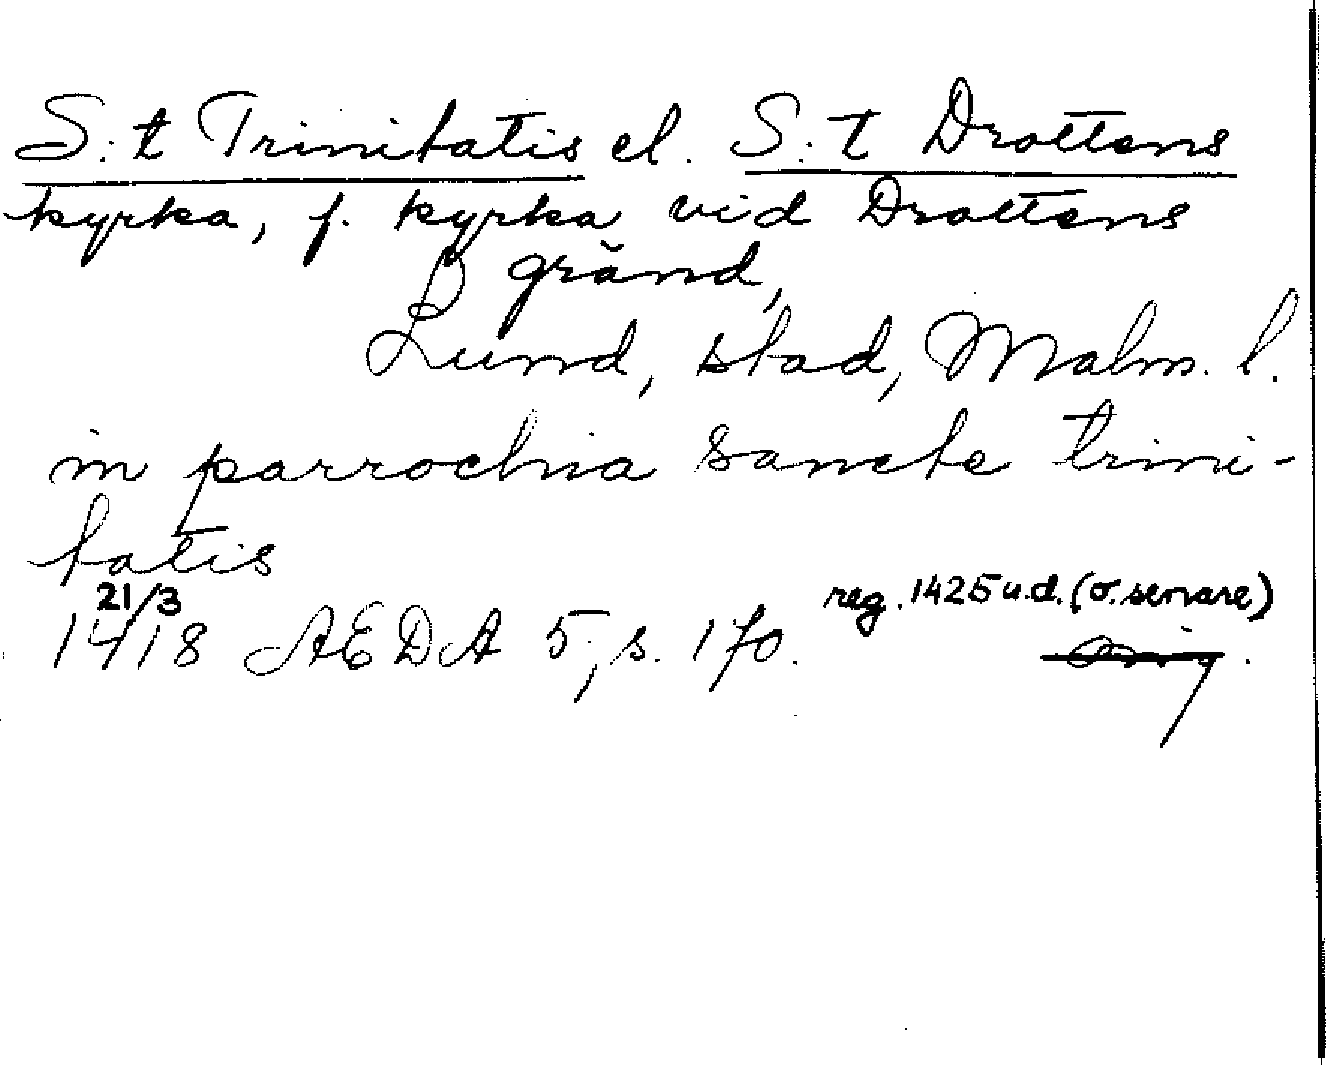 S:t Trinitatis el. S:t Drottens
kyrka, f. kyrka vid Drottens
gränd,
Lund, stad, Malm. l.
in parrochia sancte trini-
tatis
21/3
1418 AEDA 5, s. 170. reg. 1425 u.d. (o. senare)
orig.